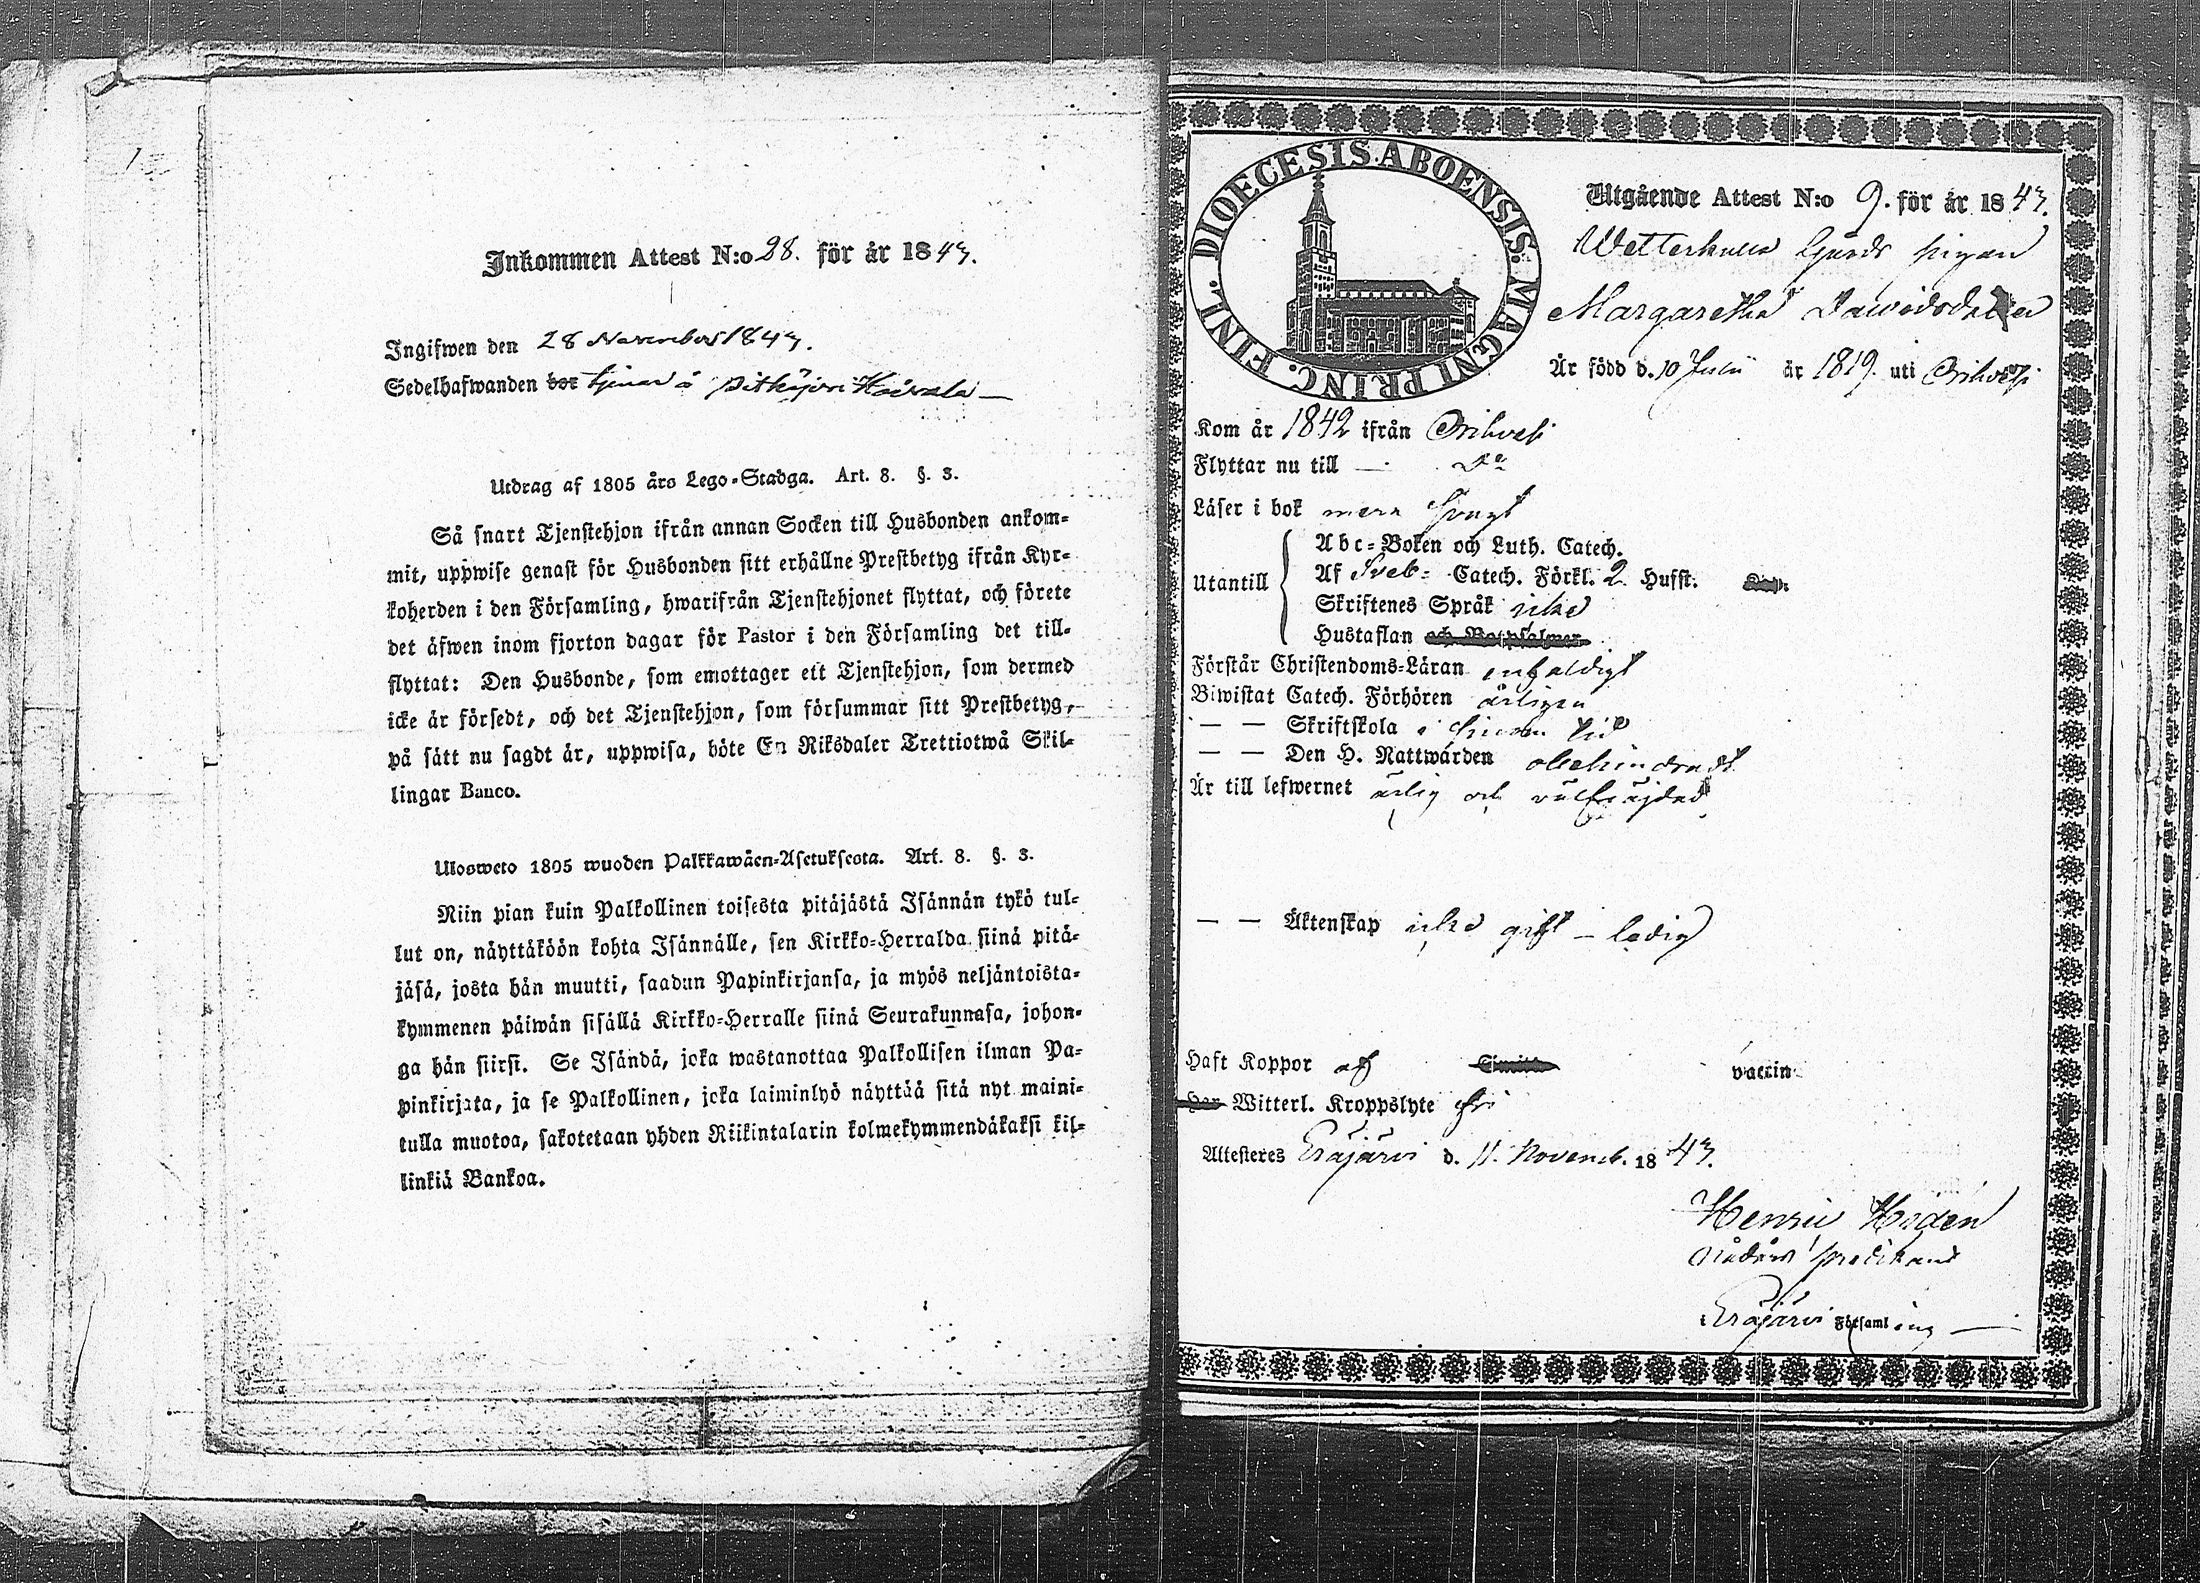 Inkommen Attest N:o 28. för år 1843.
Ingifwen den 28 November 1843.
Sedelhafwanden bor tjenar å Pitkäjärvi
Utdrag af 1805 års Lego-Stadga. Art. 8. §. 3.
Så snart Tjenstehjon ifrån annan Socken till Husbonden ankom-
mit, uppwise genast för Husbonden sitt erhållne Prestbetyg ifrån Kyr-
koherden i den Församling, hwarifrån Tjenstehjonet flyttat, och förete
det äfwen inom fjorton dagar för Pastor i den Församling det till-
flyttat: Den Husbonde, som emottager ett Tjenstehjon, som dermed
icke är försedt, och det Tjenstehjon, som försummar sitt Prestbetyg,
på sätt nu sagdt är, uppwisa, böte En Riksdaler Trettiotwå Skil-
lingar Banco.
Ulosweto 1805 wuoden Palkkawäen-Asetuksesta. Art. 8. §. 3.
Niin pian kuin Palkollinen toisesta pitäjästä Isännän tykö tul-
lut on, näyttäköön kohta Isännälle, sen Kirkko-Herralda siinä pitä-
jäsä, josta hän muutti, saadun Papinkirjansa, ja myös neljäntoista-
kymmenen päiwän sisällä Kirkko-Herralle siinä Seurakunnasa, johon-
ga hän siirsi. Se Isändä, joka wastanottaa Palkollisen ilman Pa-
pinkirjata, ja se Palkollinen, joka laiminlyö näyttää sitä nyt maini-
tulla muotoa, sakotetaan yhden Riikintalarin kolmekymmendäkaksi kil-
linkiä Bankoa.
DIOECESIS ABOENSIS. MAGNI PRINC. FINL.
Utgående Attest N:o 9. för år 1843.
Gårds pigan
Margaretha Dawidsdotter
Är född d. 10 Julii år 1819. uti Orihvesi
Kom år 1842 ifrån Orihvesi
Flyttar nu till — Do
Läser i bok svagt
Utantill
Abc-Boken och Luth. Catech.
Af Sveb: Catech. Förkl. 2 Hufst.
Skriftenes Språk icke
Hustaflan och Botpsalmer
Förstår Christendoms-Läran enfaldigt
Biwistat Catech. Förhören årligen
— — Skriftskola i sinom tid
— — Den H. Nattwarden obehindradt
Är till lefwernet ärlig och välfräjdad
— — Äktenskap icke gift — ledig
Haft Koppor af vaccin
Har Witterl. Kroppslyte fri
Attesteres Eräjärvi d. 11. Novemb. 1843.
Henric
predikant
Eräjärvi Församling